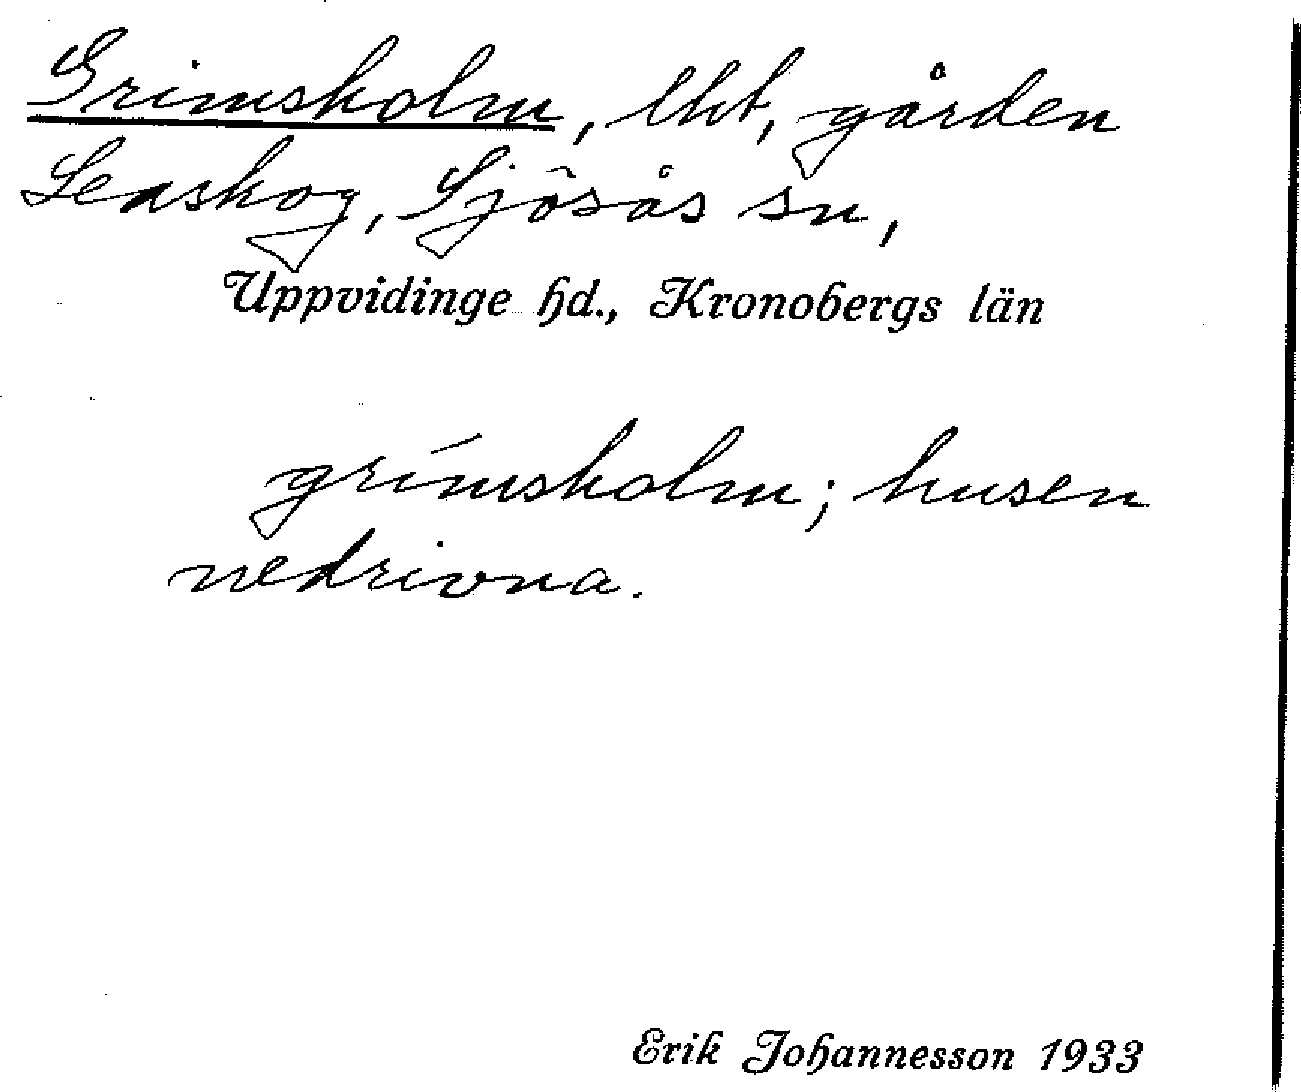 Grimsholm, lht, gården
Leaskog, Sjösås sn,
Uppvidinge hd., Kronobergs län
grímsholm; husen
nedrivna.
Erik Johannesson 1933